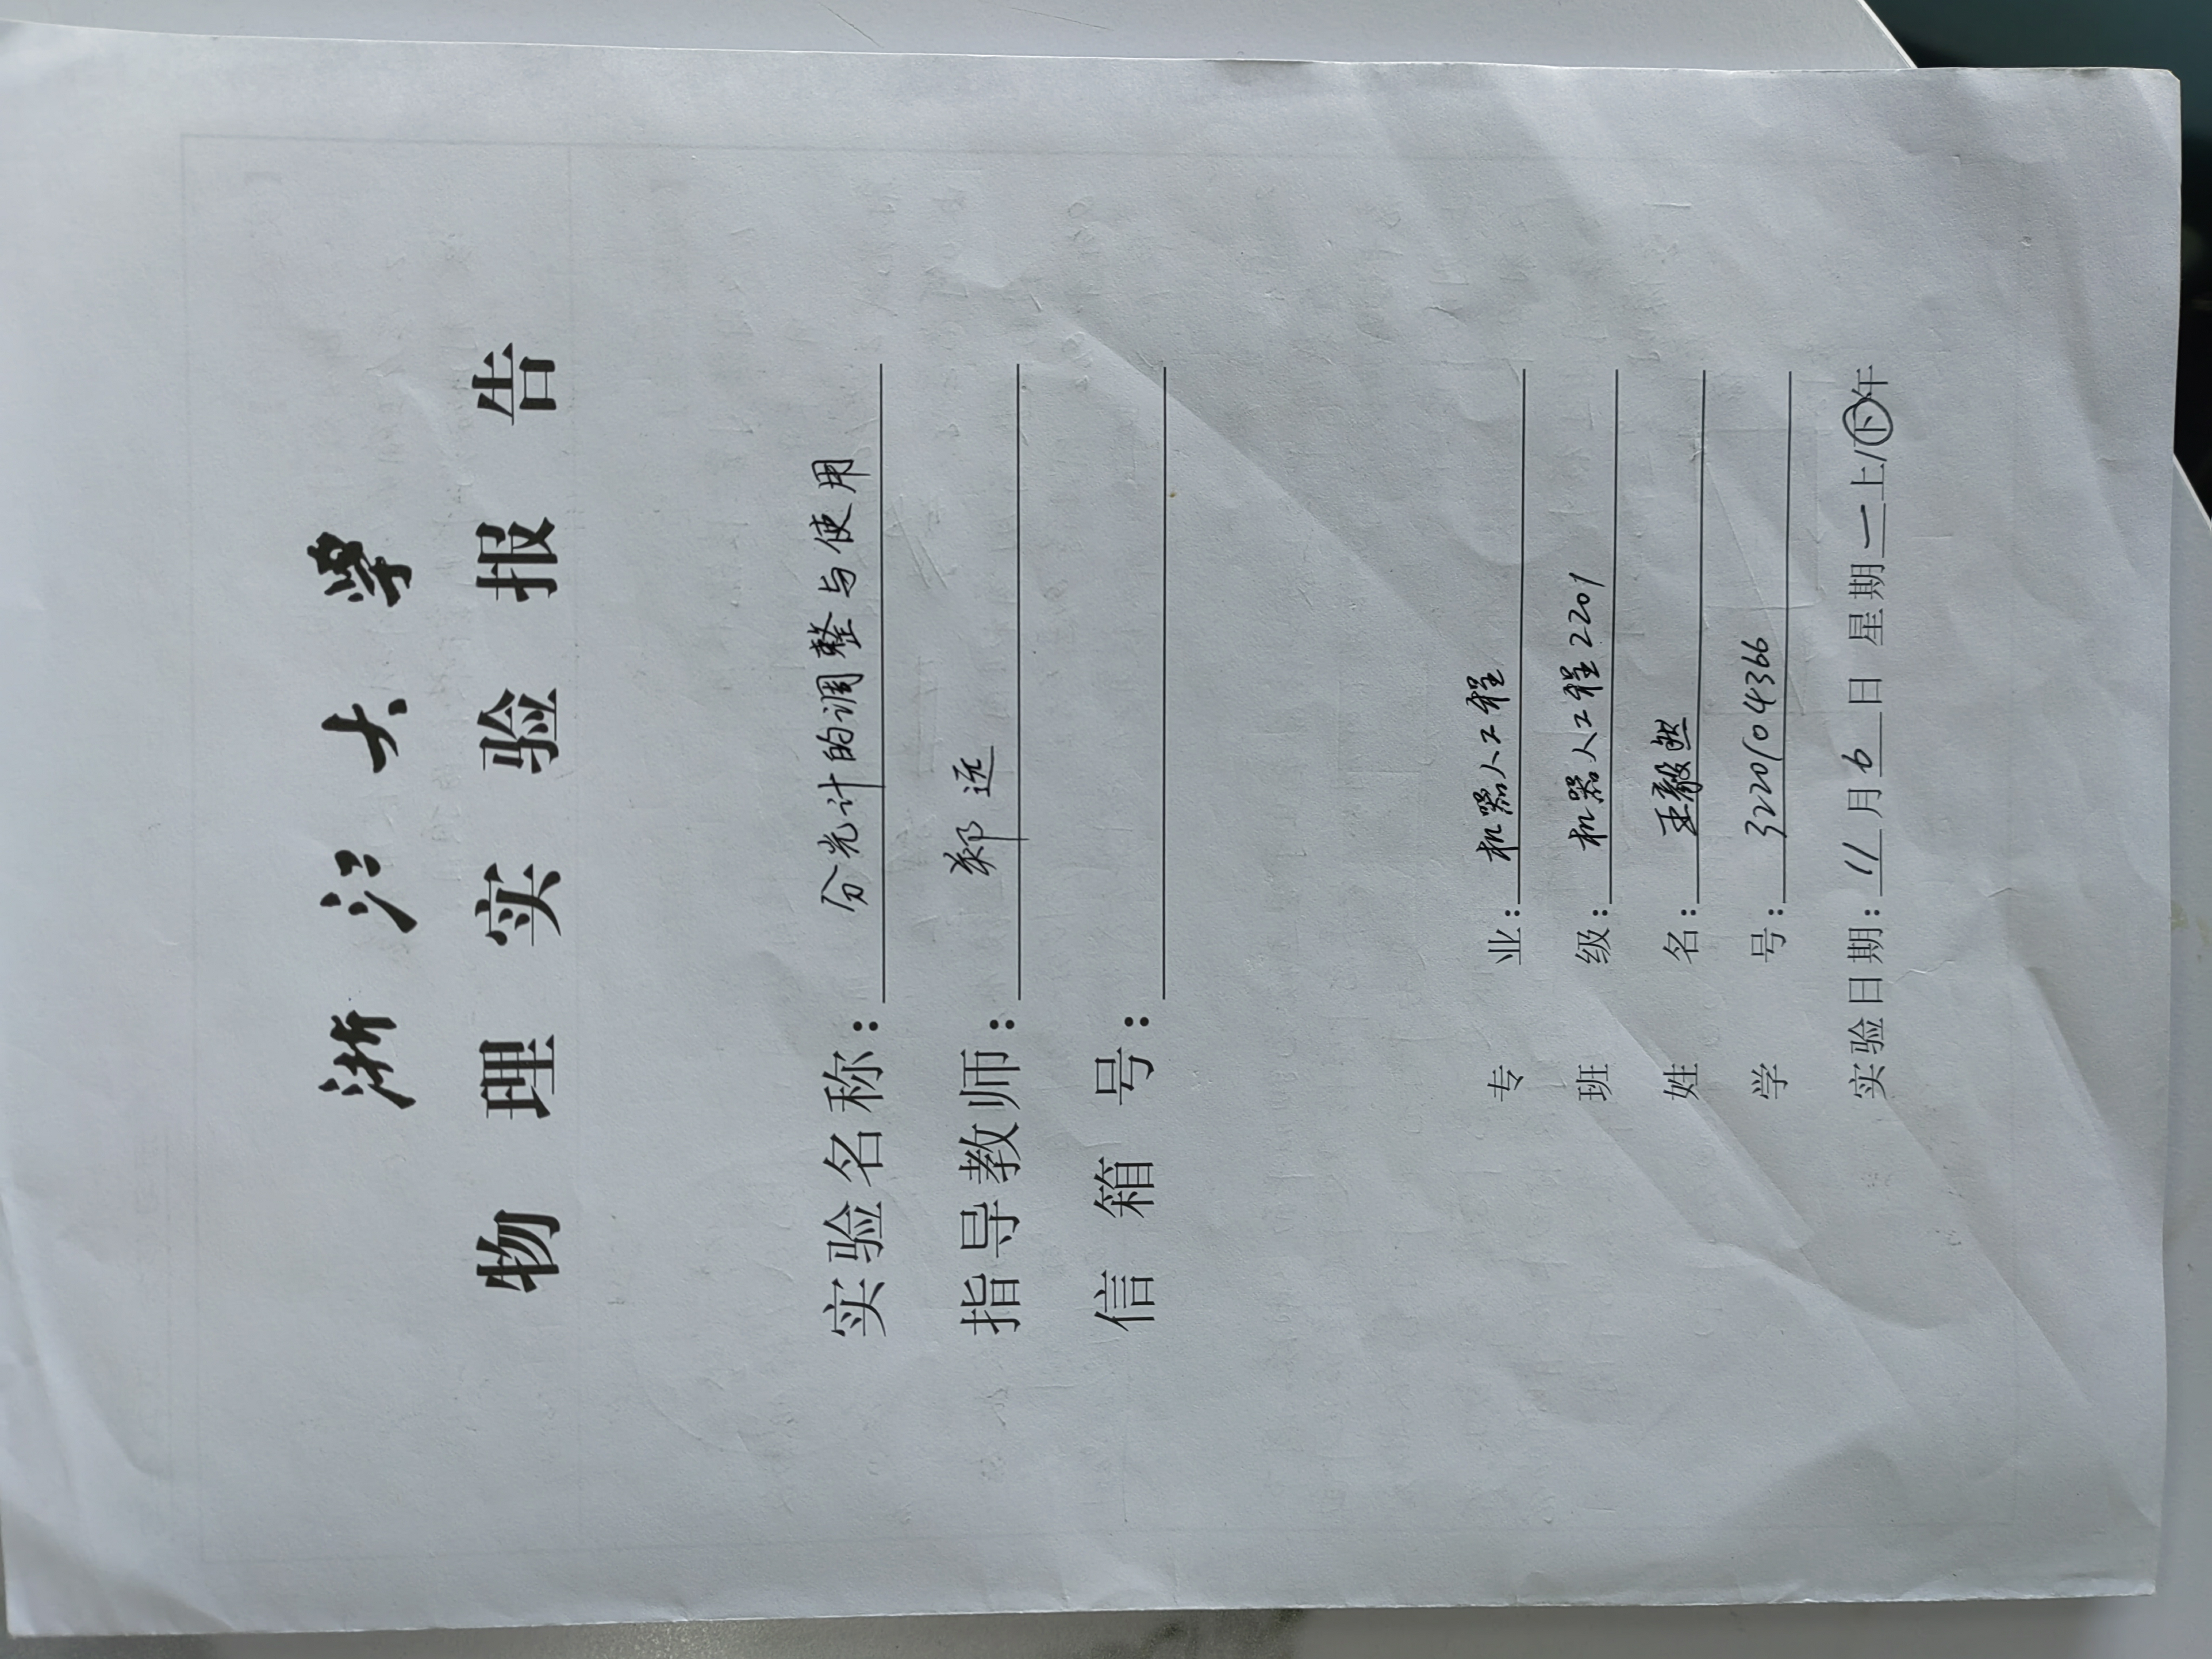 浙江大学
物理实验报告
实验名称：分光计的调整与使用
指导教师：郑远
信箱号：
专业：机器人工程
班级：机器人工程2201
姓名：王毅然
学号：3220104366
实验日期：11月6日 星期一上/下午